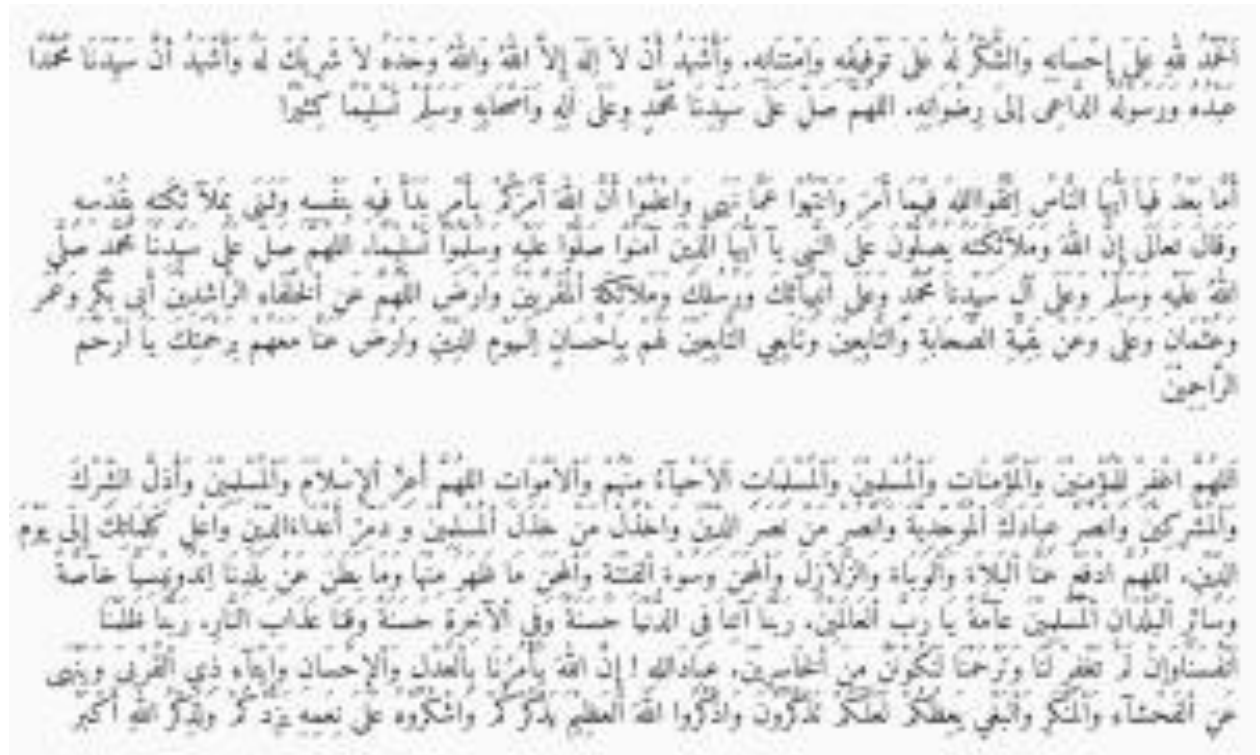 اَلْحَمْدُ للهِ عَلىَ إِحْسَانِهِ وَالشُّكْرُ لَهُ عَلىَ تَوْفِيْقِهِ وَاِمْتِنَانِهِ. وَأَشْهَدُ أَنْ لاَ اِلَهَ إِلاَّ اللهُ وَاللهُ وَحْدَهُ لاَ شَرِيْكَ لَهُ وَأَشْهَدُ أنَّ سَيِّدَنَا مُحَمَّدًا
عَبْدُهُ وَرَسُوْلُهُ الدَّاعِى إلىَ رِضْوَانِهِ. اللهُمَّ صَلِّ عَلَى سَيِّدِنَا مُحَمَّدٍ وِعَلَى اَلِهِ وَأَصْحَابِهِ وَسَلِّمْ تَسْلِيْمًا كِثيْرًا
أَمَّا بَعْدُ فَياَ اَيُّهَا النَّاسُ اِتَّقُوااللهَ فِيْمَا أَمَرَ وَانْتَهُوْا عَمَّا نَهَى وَاعْلَمُوْا أَنَّ اللهَ أَمَرَكُمْ بِأَمْرٍ بَدَأَ فِيْهِ بِنَفْسِهِ وَثَـنَى بِمَلآ ئِكَتِهِ بِقُدْسِهِ
وَقَالَ تَعاَلَى إِنَّ اللهَ وَمَلآئِكَتَهُ يُصَلُّوْنَ عَلىَ النَّبِى يآ اَيُّهَا الَّذِيْنَ آمَنُوْا صَلُّوْا عَلَيْهِ وَسَلِّمُوْا تَسْلِيْمًا. اللهُمَّ صَلِّ عَلَى سَيِّدِنَا مُحَمَّدٍ صَلَّى
اللهُ عَلَيْهِ وَسَلِّمْ وَعَلَى آلِ سَيِّدِناَ مُحَمَّدٍ وَعَلَى اَنْبِيآئِكَ وَرُسُلِكَ وَمَلآئِكَةِ اْلمُقَرَّبِيْنَ وَارْضَ اللّهُمَّ عَنِ اْلخُلَفَاءِ الرَّاشِدِيْنَ أَبِى بَكْرٍ وَعُمَرَ
وَعُثْمَانَ وَعَلِى وَعَنْ بَقِيَّةِ الصَّحَابَةِ وَالتَّابِعِيْنَ وَتَابِعِي التَّابِعِيْنَ لَهُمْ بِاِحْسَانٍ اِلَىيَوْمِ الدِّيْنِ وَارْضَ عَنَّا مَعَهُمْ بِرَحْمَتِكَ يَا أَرْحَمَ
الرَّاحِمِيْنَ
اَللهُمَّ اغْفِرْ لِلْمُؤْمِنِيْنَ وَاْلمُؤْمِنَاتِ وَاْلمُسْلِمِيْنَ وَاْلمُسْلِمَاتِ اَلاَحْيآءُ مِنْهُمْ وَاْلاَمْوَاتِ اللهُمَّ أَعِزَّ اْلإِسْلاَمَ وَاْلمُسْلِمِيْنَ وَأَذِلَّ الشِّرْكَ
وَاْلمُشْرِكِيْنَ وَانْصُرْ عِبَادَكَ اْلمُوَحِّدِيَّةَ وَانْصُرْ مَنْ نَصَرَ الدِّيْنَ وَاخْذُلْ مَنْ خَذَلَ اْلمُسْلِمِيْنَ وَ دَمِّرْ أَعْدَاءَالدِّيْنِ وَاعْلِ كَلِمَاتِكَ إِلَى يَوْمَ
الدِّيْنِ. اللهُمَّ ادْفَعْ عَنَّا اْلبَلاَءَ وَاْلوَبَاءَ وَالزَّلاَزِلَ وَاْلمِحَنَ وَسُوْءَ اْلفِتْنَةِ وَاْلمِحَنَ مَا ظَهَرَ مِنْهَا وَمَا بَطَنَ عَنْ بَلَدِنَا اِنْدُونِيْسِيَّا خآصَّةً
وَسَائِرِ اْلبُلْدَانِ اْلمُسْلِمِيْنَ عآمَّةً يَا رَبَّ اْلعَالَمِيْنَ. رَبَّنَا آتِناَ فِى الدُّنْيَا حَسَنَةً وَفِى اْلآخِرَةِ حَسَنَةً وَقِنَا عَذَابَ النَّارِ. رَبَّنَا ظَلَمْنَا
اَنْفُسَنَاوَاِنْ لَمْ تَغْفِرْ لَنَا وَتَرْحَمْنَا لَنَكُوْنَنَّ مِنَ اْلخَاسِرِيْنَ. عِبَادَالله ! إِنَّ اللهَ يَأْمُرُنَا بِاْلعَدْلِ وَاْلإِحْسَانِ وَإِيْتآءِ ذِي اْلقُرْبىَ وَيَنْهَى
عَنِ اْلفَحْشآءِ وَاْلمُنْكَرِ وَاْلبَغْي يَعِظُكُمْ لَعَلَّكُمْ تَذَكَّرُوْنَ وَاذْكُرُوا اللهَ اْلعَظِيْمَ يَذْكُرْكُمْ وَاشْكُرُوْهُ عَلىَ نِعَمِهِ يَزِدْكُمْ وَلَذِكْرُ اللهِ أَكْبَرْ